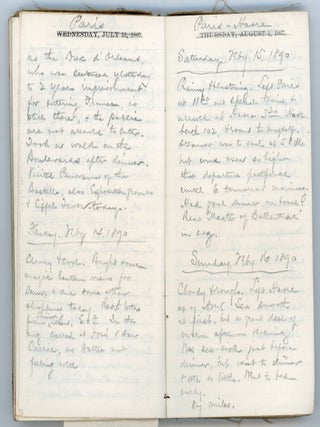 Paris
WEDNESDAY, JULY 31, 1867.
as the Duc d'Orleans,
who was sentenced yesterday
to 2 years imprisonment
for entering France, is
still there, & the public
are not allowed to enter.
Took a walk on the
Boulevards after dinner.
Visited Panorama of the
Bastille, also Exposition grounds
& Eiffel Tower today.
Friday, May 14. 1890
Cloudy & cool. Bought some
magic lantern slides for
and did some other
shopping today. Hotel
In the
evg. called at
Carrie, as Hattie not
feeling well.
Paris - Havre
THURSDAY, AUGUST 1, 1867.
Saturday May 15. 1890
Rainy & blustering. Left Paris
at on special train, &
arrived at Havre
berth 102, & room to myself.
Steamer was to sail at 5 P.M.
but wind & sea so high
that departure postponed
until 6 tomorrow morning.
Had good dinner on board.
Read "Master of Ballantrae"
in evg.
Sunday, May 16, 1890
Cloudy throughout. Left Havre
at 7 A.M. Sea smooth
at first, but a great deal of
motion afternoon & evening.
Was sea-sick just before
dinner, but went to dinner
& ate a little. Went to bed
early.
miles.